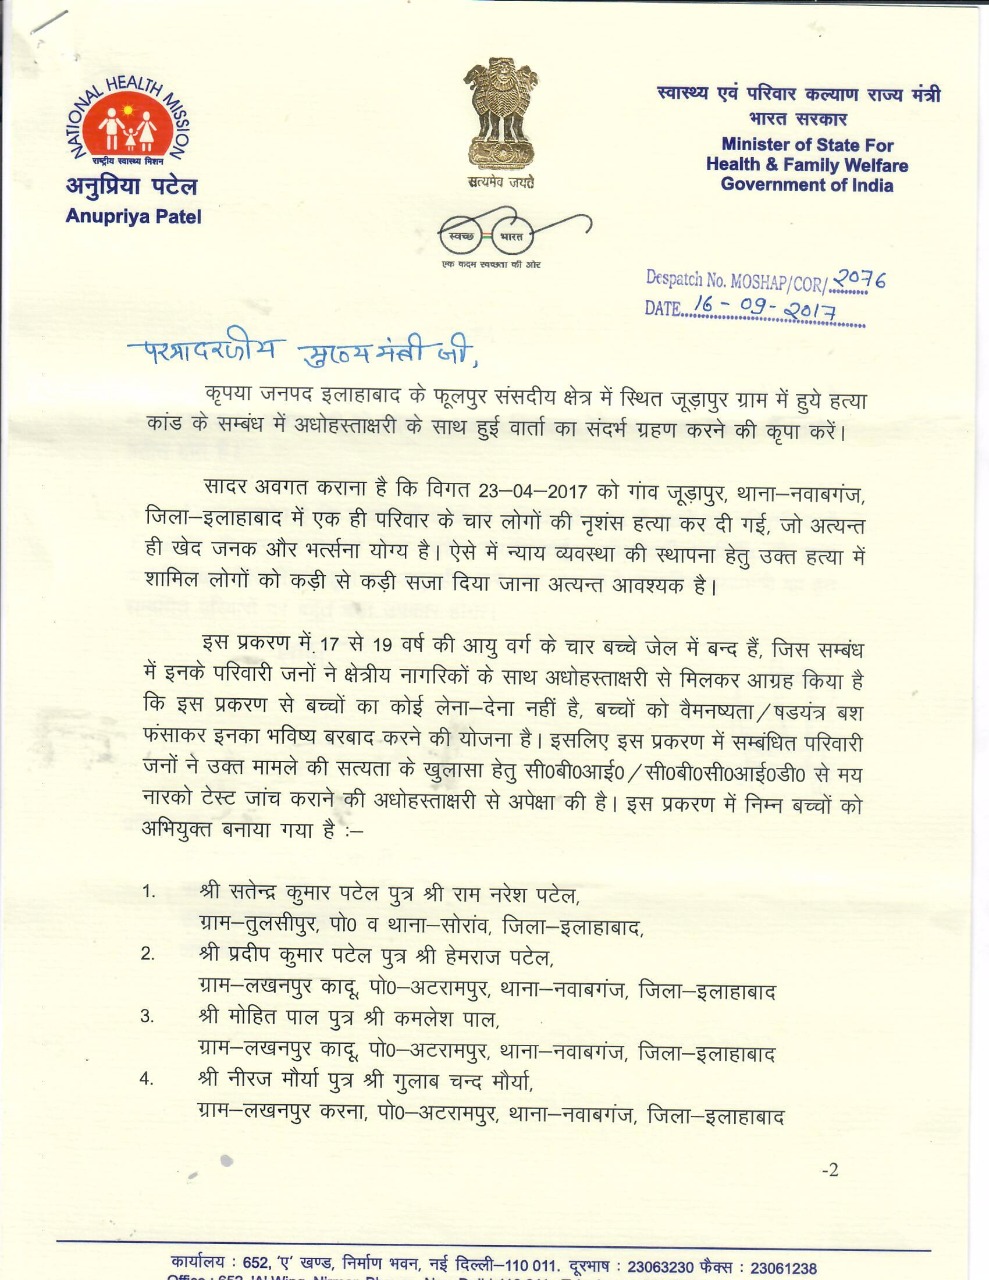 NATIONAL HEALTH MISSION
राष्ट्रीय स्वास्थ्य मिशन
अनुप्रिया पटेल
Anupriya Patel
सत्यमेव जयते
स्वच्छ भारत
एक कदम स्वच्छता की ओर
स्वास्थ्य एवं परिवार कल्याण राज्य मंत्री
भारत सरकार
Minister of State For
Health & Family Welfare
Government of India
Despatch No. MOSHAP/COR/ 2076
DATE 16-09-2017
परमादरणीय मुख्य मंत्री जी,
कृपया जनपद इलाहाबाद के फूलपुर संसदीय क्षेत्र में स्थित जूड़ापुर ग्राम में हुये हत्या
कांड के सम्बंध में अधोहस्ताक्षरी के साथ हुई वार्ता का संदर्भ ग्रहण करने की कृपा करें।
सादर अवगत कराना है कि विगत 23–04–2017 को गांव जूड़ापुर, थाना–नवाबगंज,
जिला–इलाहाबाद में एक ही परिवार के चार लोगों की नृशंस हत्या कर दी गई, जो अत्यन्त
ही खेद जनक और भर्त्सना योग्य है। ऐसे में न्याय व्यवस्था की स्थापना हेतु उक्त हत्या में
शामिल लोगों को कड़ी से कड़ी सजा दिया जाना अत्यन्त आवश्यक है।
इस प्रकरण में 17 से 19 वर्ष की आयु वर्ग के चार बच्चे जेल में बन्द हैं, जिस सम्बंध
में इनके परिवारी जनों ने क्षेत्रीय नागरिकों के साथ अधोहस्ताक्षरी से मिलकर आग्रह किया है
कि इस प्रकरण से बच्चों का कोई लेना–देना नहीं है, बच्चों को वैमनष्यता/षडयंत्र बश
फंसाकर इनका भविष्य बरबाद करने की योजना है। इसलिए इस प्रकरण में सम्बंधित परिवारी
जनों ने उक्त मामले की सत्यता के खुलासा हेतु सी0बी0आई0/सी0बी0सी0आई0डी0 से मय
नारको टेस्ट जांच कराने की अधोहस्ताक्षरी से अपेक्षा की है। इस प्रकरण में निम्न बच्चों को
अभियुक्त बनाया गया है :–
1. श्री सतेन्द्र कुमार पटेल पुत्र श्री राम नरेश पटेल,
ग्राम–तुलसीपुर, पो0 व थाना–सोरांव, जिला–इलाहाबाद,
2. श्री प्रदीप कुमार पटेल पुत्र श्री हेमराज पटेल,
ग्राम–लखनपुर कादू, पो0–अटरामपुर, थाना–नवाबगंज, जिला–इलाहाबाद
3. श्री मोहित पाल पुत्र श्री कमलेश पाल,
ग्राम–लखनपुर कादू, पो0–अटरामपुर, थाना–नवाबगंज, जिला–इलाहाबाद
4. श्री नीरज मौर्या पुत्र श्री गुलाब चन्द मौर्या,
ग्राम–लखनपुर करना, पो0–अटरामपुर, थाना–नवाबगंज, जिला–इलाहाबाद
-2
कार्यालय : 652, 'ए' खण्ड, निर्माण भवन, नई दिल्ली–110 011. दूरभाष : 23063230 फैक्स : 23061238